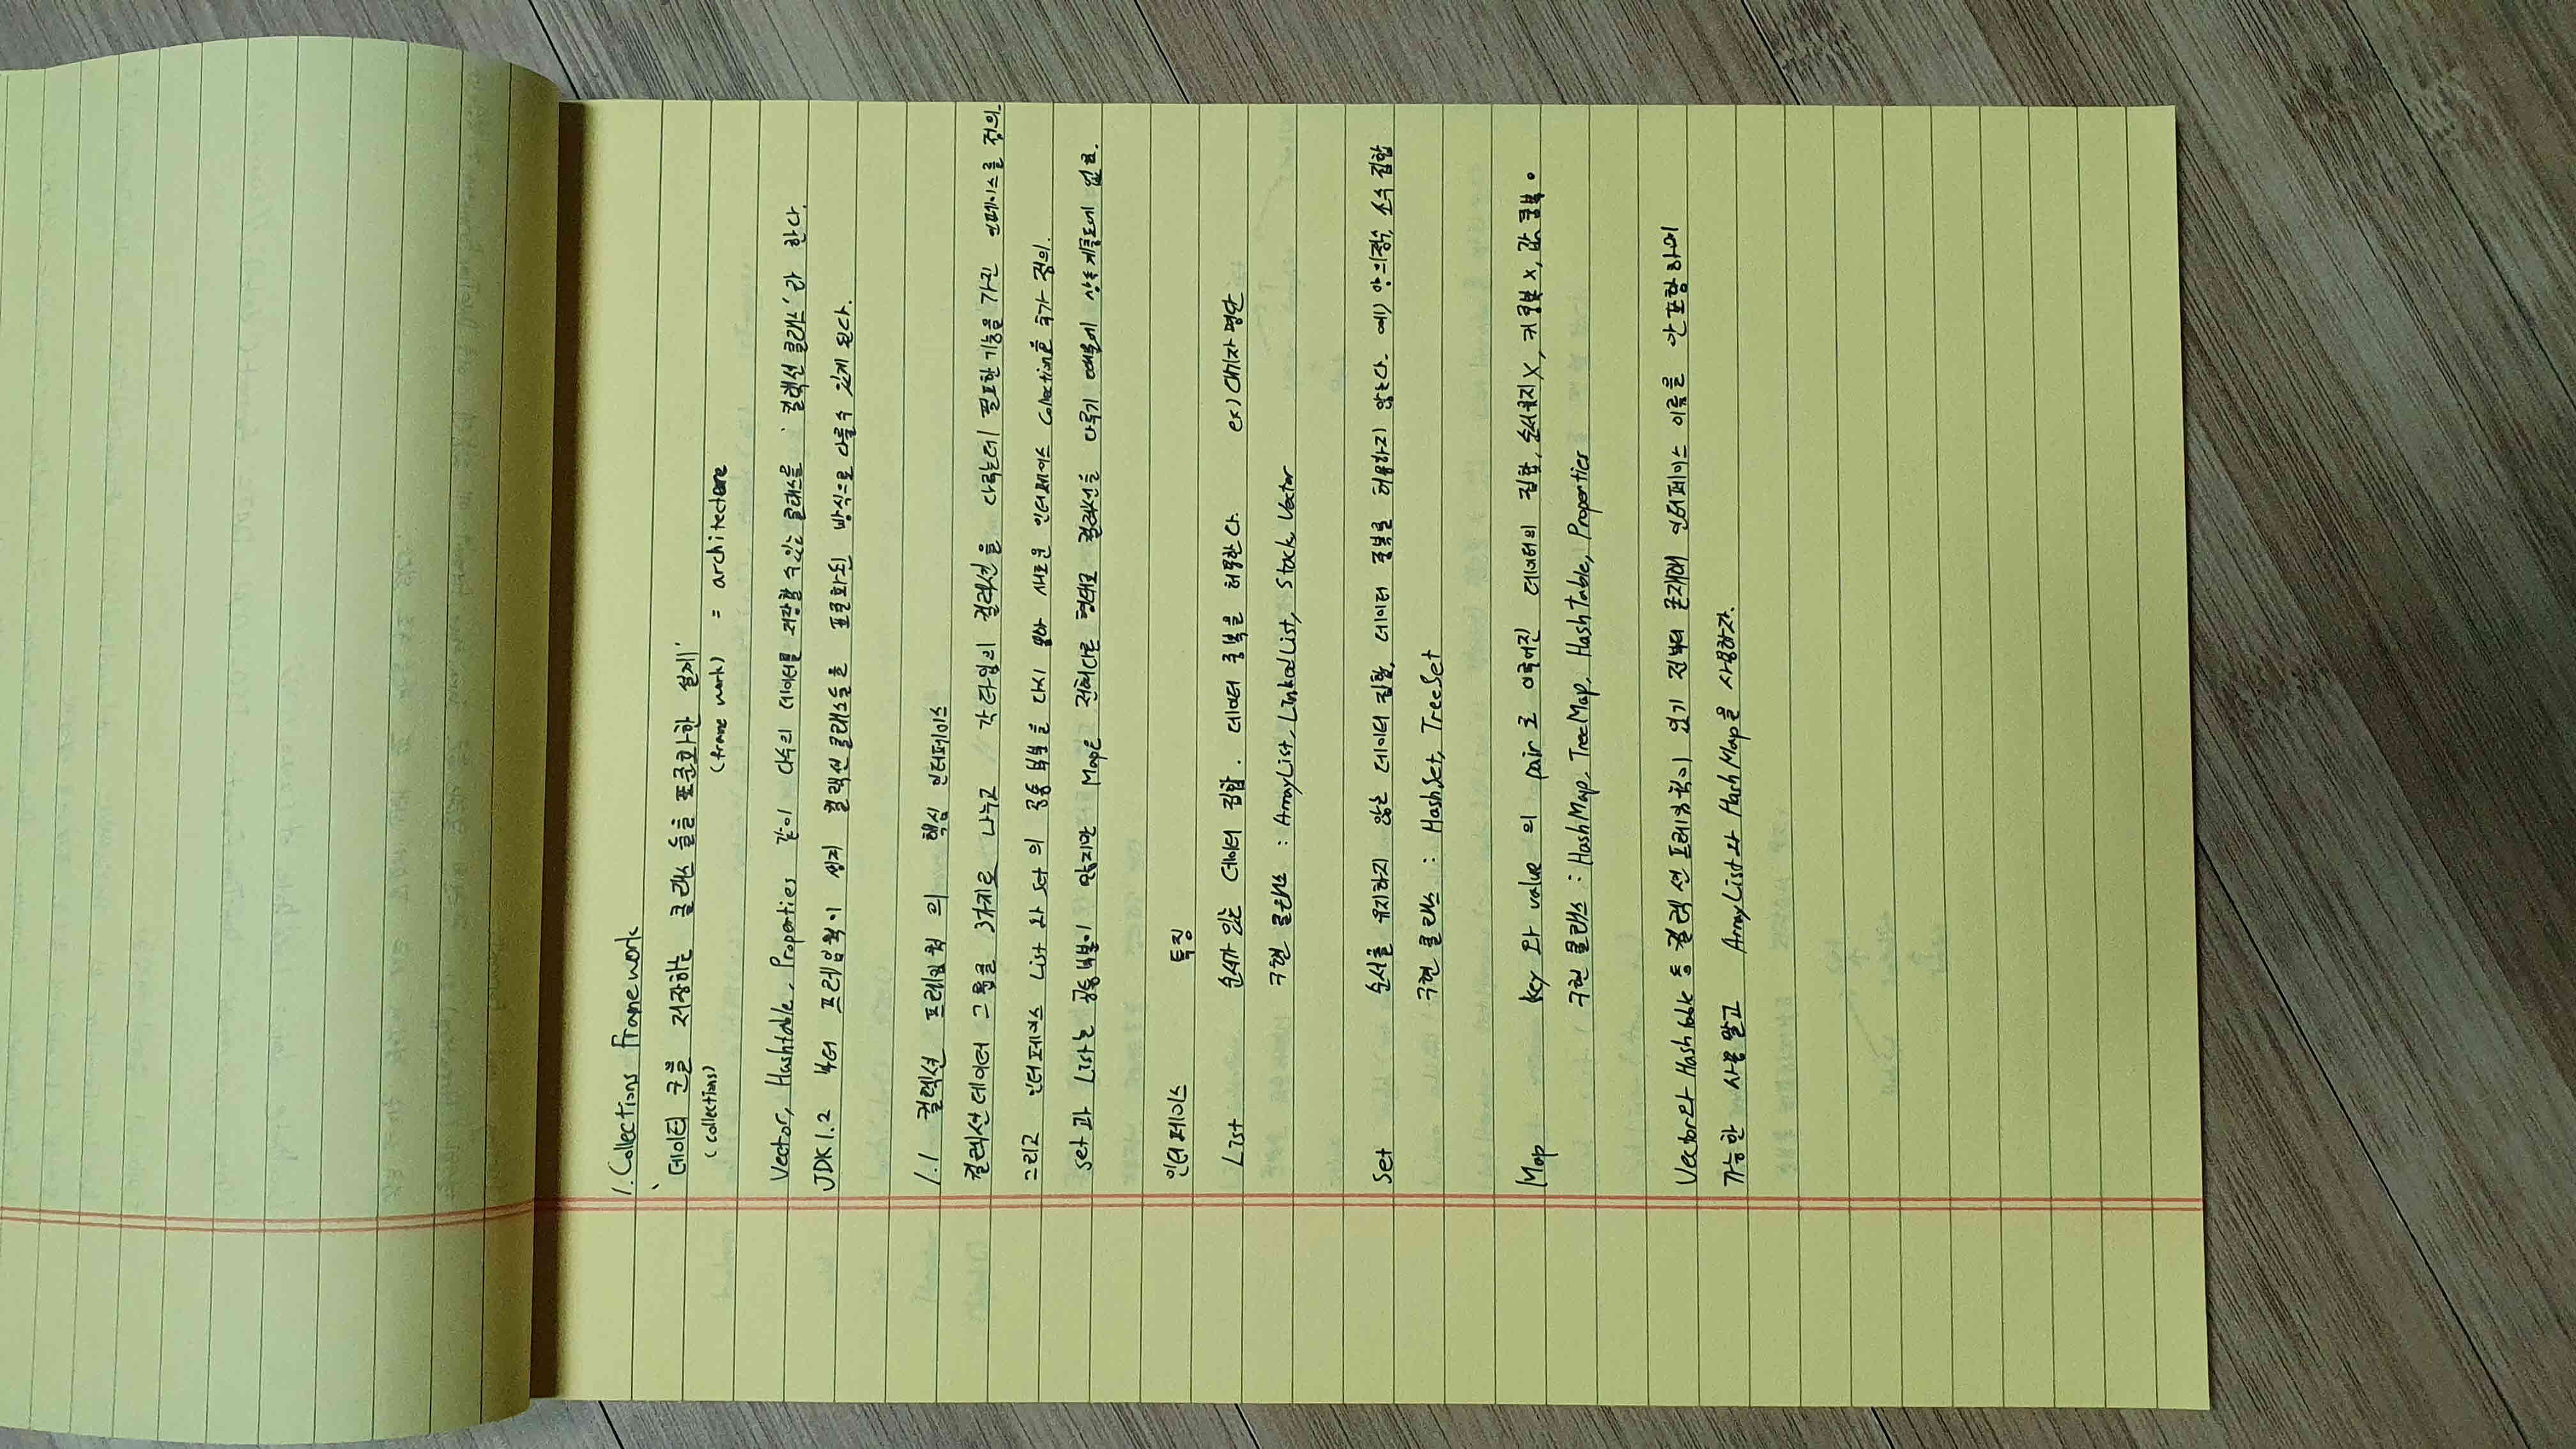 1. Collections Framework
'데이터 군을 저장하는 클래스 들을 표준화한 설계'
(collections) (frame work) = architecture
Vector, Hashtable, Properties 같이 다수의 데이터를 저장할 수 있는 클래스를 '컬렉션 클래스'라 한다.
JDK1.2 부터 프레임웍이 생겨 컬렉션 클래스들을 표준화된 방식으로 다룰 수 있게 된다.
1.1 컬렉션 프레임웍 의 핵심 인터페이스
컬렉션 데이터 그룹을 3가지로 나누고 각 타입의 컬렉션을 다루는데 필요한 기능을 가진 인페이스를 정의.
그리고 인터페이스 List 와 set 의 공통 부분을 다시 뽑아 새로운 인터페이스 Collection을 추가 정의.
set 과 List는 공통부분이 많지만 Map은 전혀다른 형태로 컬렉션을 다루기 때문에 상속계층도에 없다.
인터페이스 특징
List 순서가 있는 데이터 집합. 데이터 중복을 허용한다. ex) 대기자 명단
구현 클래스 : ArrayList, LinkedList, Stack, Vector
Set 순서를 유지하지 않는 데이터 집합, 데이터 중복을 허용하지 않는다. 예) 양의정수, 소수 집합
구현 클래스 : HashSet, TreeSet
Map Key 와 value 의 pair 로 이루어진 데이터의 집합, 순서유지 X, 키 중복 x, 값 중복 o
구현 클래스 : HashMap, TreeMap, HashTable, Properties
Vector와 Hashtable 등 컬렉션 프레임웍이 있기 전부터 존재해 인터페이스 이름을 안 포함하며
가능한 사용 말고 ArrayList와 HashMap을 사용하자.